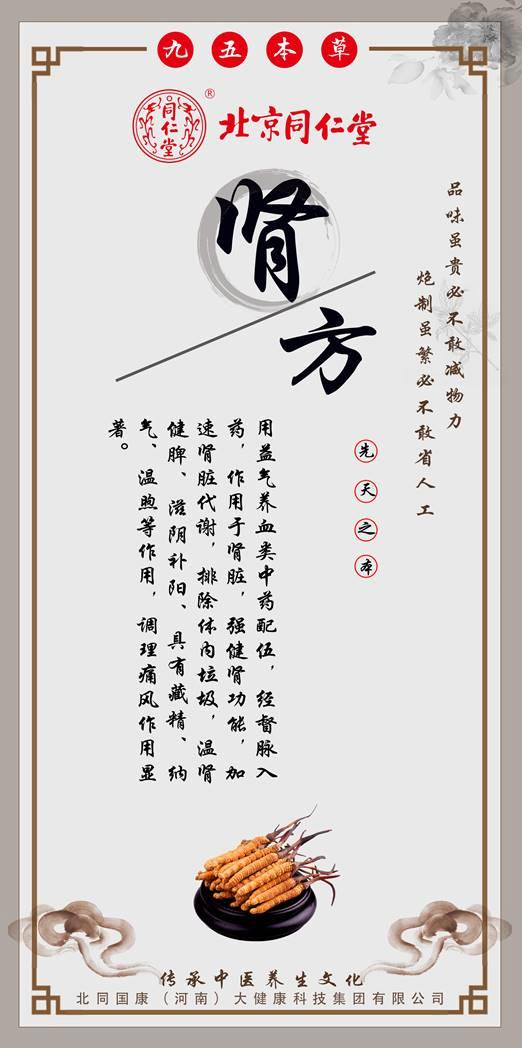 九五本草
同仁堂
®
北京同仁堂
肾
方
品味虽贵必不敢减物力
炮制虽繁必不敢省人工
先天之本
用益气养血类中药配伍，经督脉入
药，作用于肾脏，强健肾功能，加
速肾脏代谢，排除体内垃圾，温肾
健脾、滋阴补阳、具有藏精、纳
气、温煦等作用，调理痛风作用显
著。
传承中医养生文化
北同国康（河南）大健康科技集团有限公司